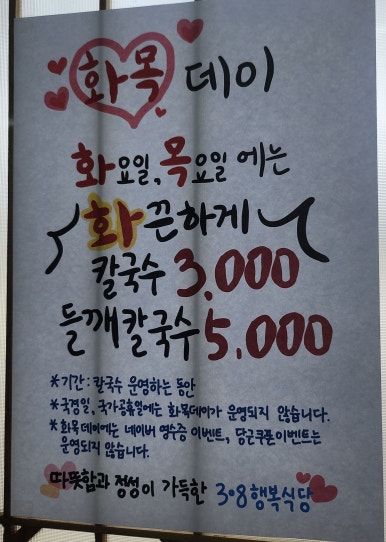 화목 데이
화요일, 목요일 에는
화끈하게
칼국수 3,000
들깨칼국수 5,000
*기간: 칼국수 운영하는 동안
*국경일, 국가공휴일에는 화목데이가 운영되지 않습니다.
*화목데이에는 네이버 영수증 이벤트, 당근쿠폰이벤트는
운영되지 않습니다.
따뜻함과 정성이 가득한 3·8행복식당